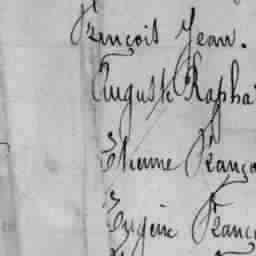 François Jean.
Auguste Rapha
Etienne Franço
Eugène Franç